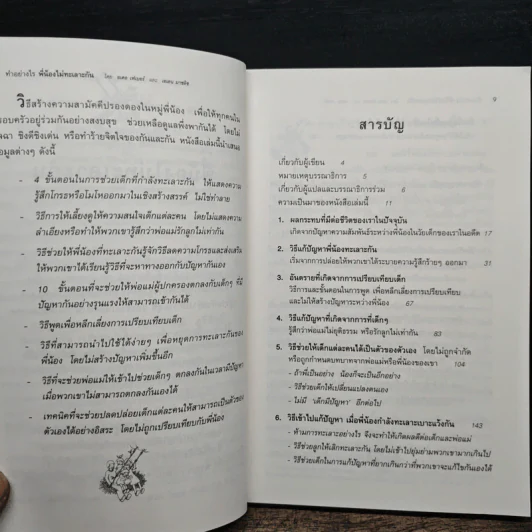 ทำอย่างไร พี่น้องไม่ทะเลาะกัน
วิธีสร้างความสามัคคีปรองดองในหมู่พี่น้อง เพื่อให้ทุกคนใน
ครอบครัวอยู่ร่วมกันอย่างสงบสุข ช่วยเหลือดูแลพึ่งพากันได้ โดยไม่
ฉา ชิงดีชิงเด่น หรือทำร้ายจิตใจของกันและกัน หนังสือเล่มนี้นำเสนอ
มูลต่างๆ ดังนี้
- 4 ขั้นตอนในการช่วยเด็กที่กำลังทะเลาะกัน ให้แสดงความ
รู้สึกโกรธหรือโมโหออกมาในเชิงสร้างสรรค์ ไม่ใช่ทำลาย
- วิธีการให้เลี้ยงดูให้ความสนใจเด็กแต่ละคน โดยไม่แสดงความ
ลำเอียงหรือทำให้พวกเขาคิดว่าพ่อแม่รักลูกไม่เท่ากัน
- วิธีช่วยให้พี่น้องที่ทะเลาะกันรู้จักวิธีลดความโกรธและส่งเสริม
ให้พวกเขาได้เรียนรู้วิธีที่จะหาทางออกกับปัญหากันเอง
- 10 ขั้นตอนที่จะช่วยให้พ่อแม่ผู้ปกครองตกลงกับเด็กๆ ที่มี
ปัญหากันอย่างรุนแรงให้สามารถเข้ากันได้
- วิธีพูดเพื่อหลีกเลี่ยงการเปรียบเทียบเด็ก
- วิธีที่สามารถนำไปใช้ได้ง่ายๆ เพื่อหยุดการทะเลาะกันของ
พี่น้อง โดยไม่สร้างปัญหาเพิ่มขึ้นอีก
- วิธีที่จะช่วยพ่อแม่ให้เข้าไปช่วยเด็กๆ ตกลงกันในเวลามีปัญหา
เมื่อพวกเขาไม่สามารถตกลงกันเองได้
- เทคนิคที่จะช่วยปลดปล่อยเด็กแต่ละคนให้สามารถเป็นตัวของ
ตัวเองได้อย่างอิสระ โดยไม่ถูกเปรียบเทียบกับพี่น้อง
9
สารบัญ
เกี่ยวกับผู้เขียน 4
หมายเหตุบรรณาธิการ 5
เกี่ยวกับผู้แปลและบรรณาธิการร่วม 6
ความเป็นมาของหนังสือเล่มนี้ 11
1. ผลกระทบที่มีต่อชีวิตของเราในปัจจุบัน
เกิดจากปัญหาความสัมพันธ์ระหว่างพี่น้องในวัยเด็กของเราในอดีต 17
2. วิธีแก้ปัญหาพี่น้องทะเลาะกัน
เริ่มจากการปล่อยให้พวกเขาได้ระบายความรู้สึกร้ายๆ ออกมา 31
3. อันตรายที่เกิดจากการเปรียบเทียบเด็ก
วิธีการและขั้นตอนในการพูด เพื่อหลีกเลี่ยงการเปรียบเทียบ
และไม่ให้สร้างปัญหาระหว่างพี่น้อง 67
4. วิธีแก้ปัญหาที่เกิดจากการที่เด็กๆ
รู้สึกว่าพ่อแม่ไม่ยุติธรรม หรือรักลูกไม่เท่ากัน 83
5. วิธีช่วยให้เด็กแต่ละคนได้เป็นตัวของตัวเอง โดยไม่ถูกจำกัด
หรือถูกกำหนดบทบาทจากพ่อแม่หรือพี่น้องของเขา 104
- ถ้าพี่เป็นอย่าง น้องก็จะเป็นอีกอย่าง
- วิธีช่วยเด็กให้เปลี่ยนแปลงตนเอง
- ไม่มี "เด็กมีปัญหา" อีกต่อไป
6. วิธีเข้าไปแก้ปัญหา เมื่อพี่น้องกำลังทะเลาะเบาะแว้งกัน 143
- ห้ามการทะเลาะอย่างไร จึงจะทำให้เกิดผลดีต่อเด็กและพ่อแม่
- วิธีช่วยลูกให้เลิกทะเลาะกัน โดยไม่เข้าไปยุ่มย่ามพวกเขามากเกินไป
- วิธีช่วยเด็กในการแก้ปัญหาที่ยากเกินกว่าที่พวกเขาจะแก้ไขกันเองได้